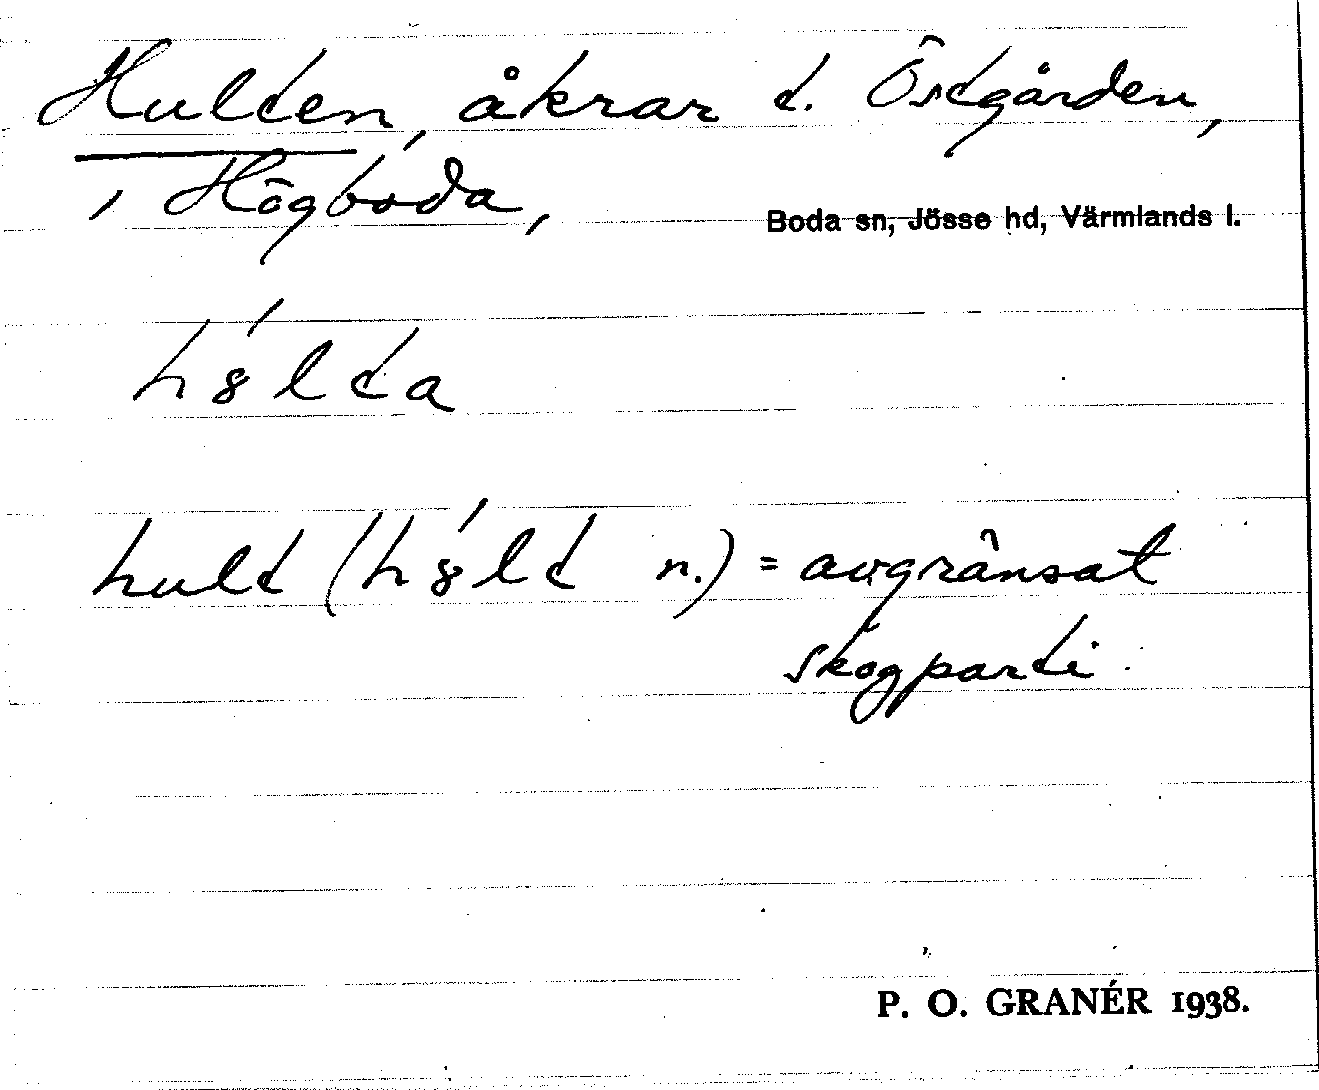 Hulten, åkrar t. Östgården,
i Högboda,
Boda sn, Jösse hd, Värmlands l.
h8́lta
hult (h8́lt n.) = avgränsat
skogparti.
P. O. GRANÉR 1938.